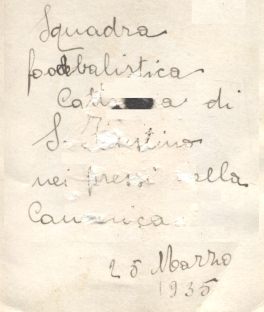 Squadra
foodbalistica
di
S.
nei pressi della
Canonica
25 Marzo
1935